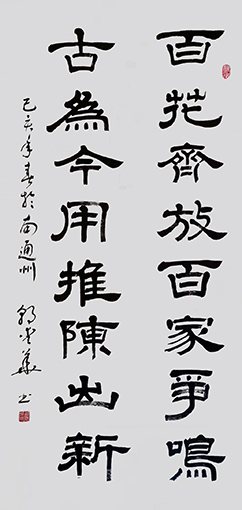 百花齊放百家爭鳴
古為今用推陳出新
己亥年春於南通州
書